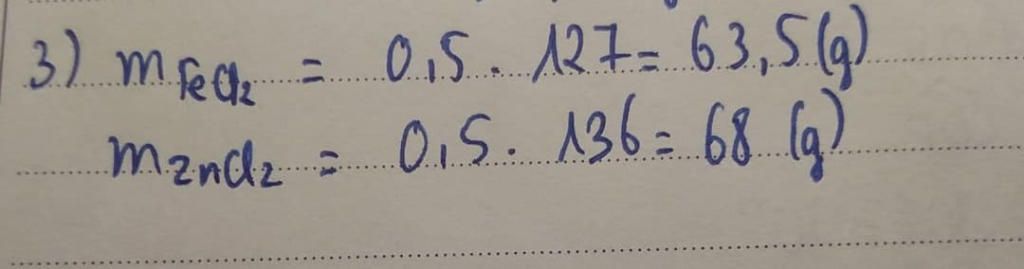 3) mFeCl2 = 0,5 . 127 = 63,5 (g)
mZnCl2 = 0,5 . 136 = 68 (g)